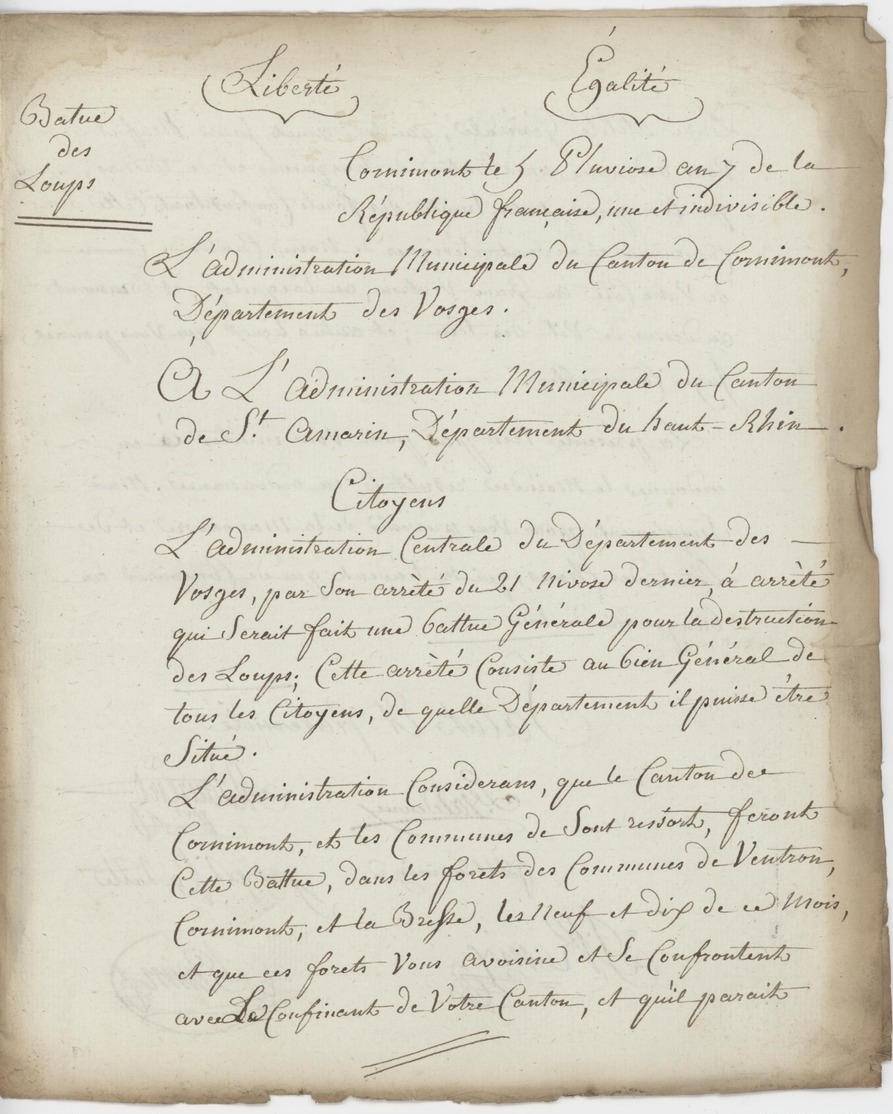 Liberté Égalité
Batue
des
Loups
Cornimont le 5 Pluviose an 7 de la
République française, une et indivisible.
L'administration Municipale du Canton de Cornimont,
Département des Vosges.
A L'administration Municipale du Canton
de St. Amarin, Département du haut-Rhin.
Citoyens
L'administration Centrale du Département des
Vosges, par Son arrèté du 21 Nivose dernier, à arrèté
qui Serait fait une battue Générale pour la destruction
des Loups; Cette arrèté Consiste au bien Général de
tous les Citoyens, de quelle Département il puisse être
Situé.
L'administration Considerans, que le Canton de
Cornimont, et les Communes de Sont ressort, feront
Cette Battue, dans les forets des Communes de Ventron,
Cornimont, et la Bresse, les Neuf et dix de ce Mois,
et que ces forets Vous avoisine et Se Confrontent
avec Le Confinant de Votre Canton, et qu'il parait